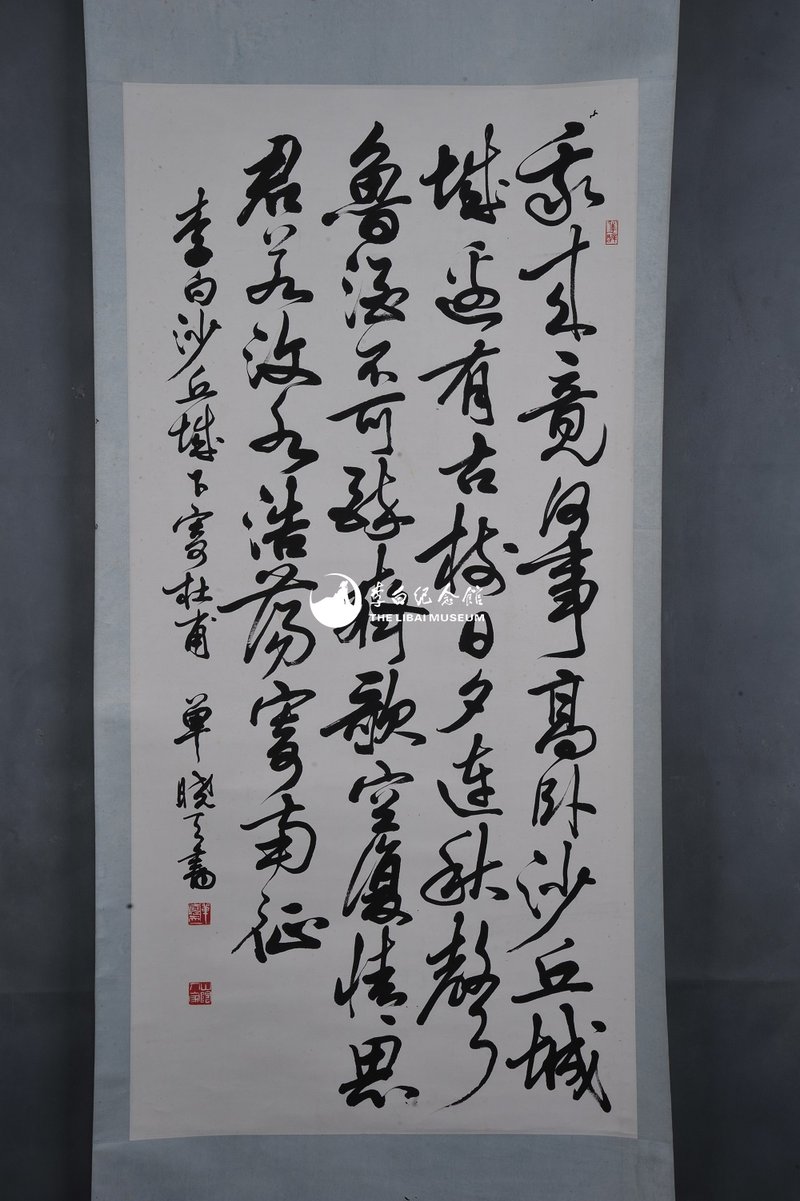 我来竟何事高卧沙丘城
城边有古树日夕连秋聲
魯酒不可醉齊歌空復情思
君若汶水浩荡寄南征
李白沙丘城下寄杜甫 单晓天書
李白纪念馆
THE LIBAI MUSEUM